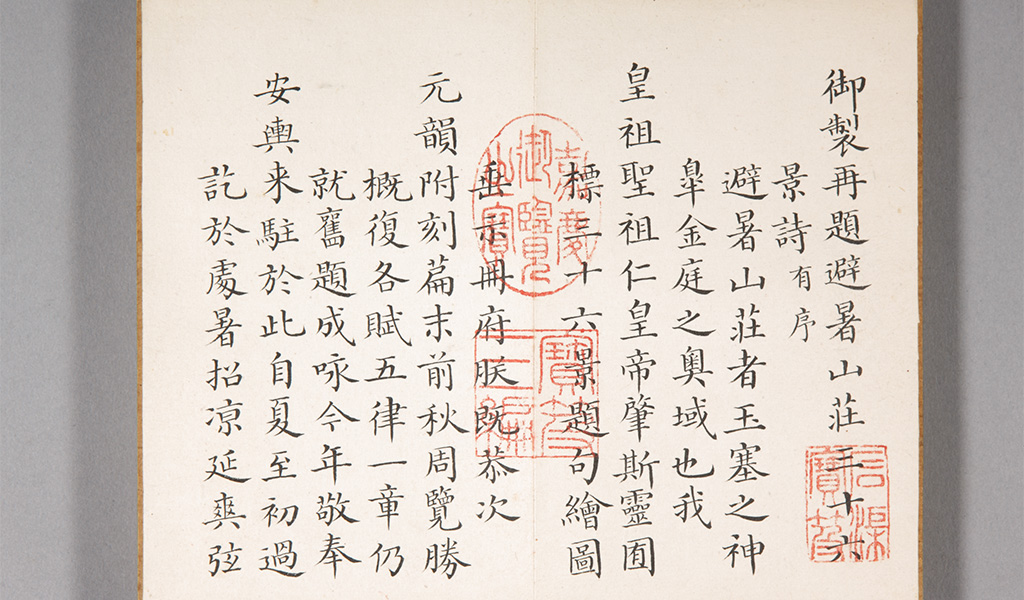 御製再題避暑山莊三十六
景詩有序
避暑山莊者玉塞之神
皐金庭之奥域也我
皇祖聖祖仁皇帝肇斯靈囿
標三十六景題句繪圖
垂示冊府朕既恭次
元韻附刻篇末前秋周覽勝
概復各賦五律一章仍
就舊題成咏今年敬奉
安輿来駐於此自夏至初過
訖於處暑招凉延爽弦
嘉慶御覽之寶
寶笈三編
石渠寶笈